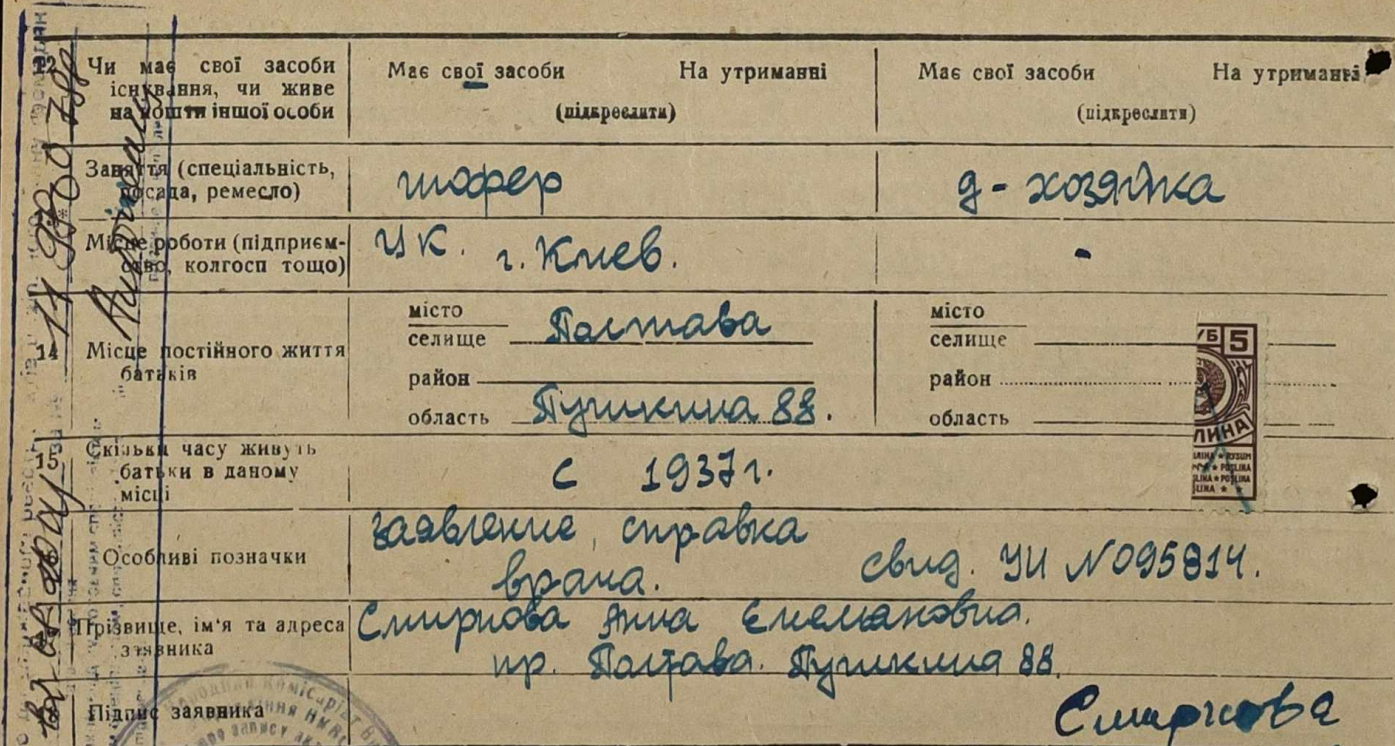 12 Чи має свої засоби існування, чи живе на кошти іншої особи
Має свої засоби На утриманні
(підкреслити)
Має свої засоби На утриманні
(підкреслити)
Заняття (спеціальність, посада, ремесло)
шофер
д-хозяйка
Місце роботи (підприємство, колгосп тощо)
ЦК. г. Киев.
-
14 Місце постійного життя батьків
місто
селище Полтава
район
область Пушкина 88.
місто
селище
район
область
УБ 5
ЛИНА
15 Скільки часу живуть батьки в даному місці
с 1937 г.
Особливі позначки
заявление, справка
врача. свид. УИ №095814.
Прізвище, ім'я та адреса заявника
Смирнова Анна Емельяновна.
пр. Полтава. Пушкина 88.
Підпис заявника
Смирнова